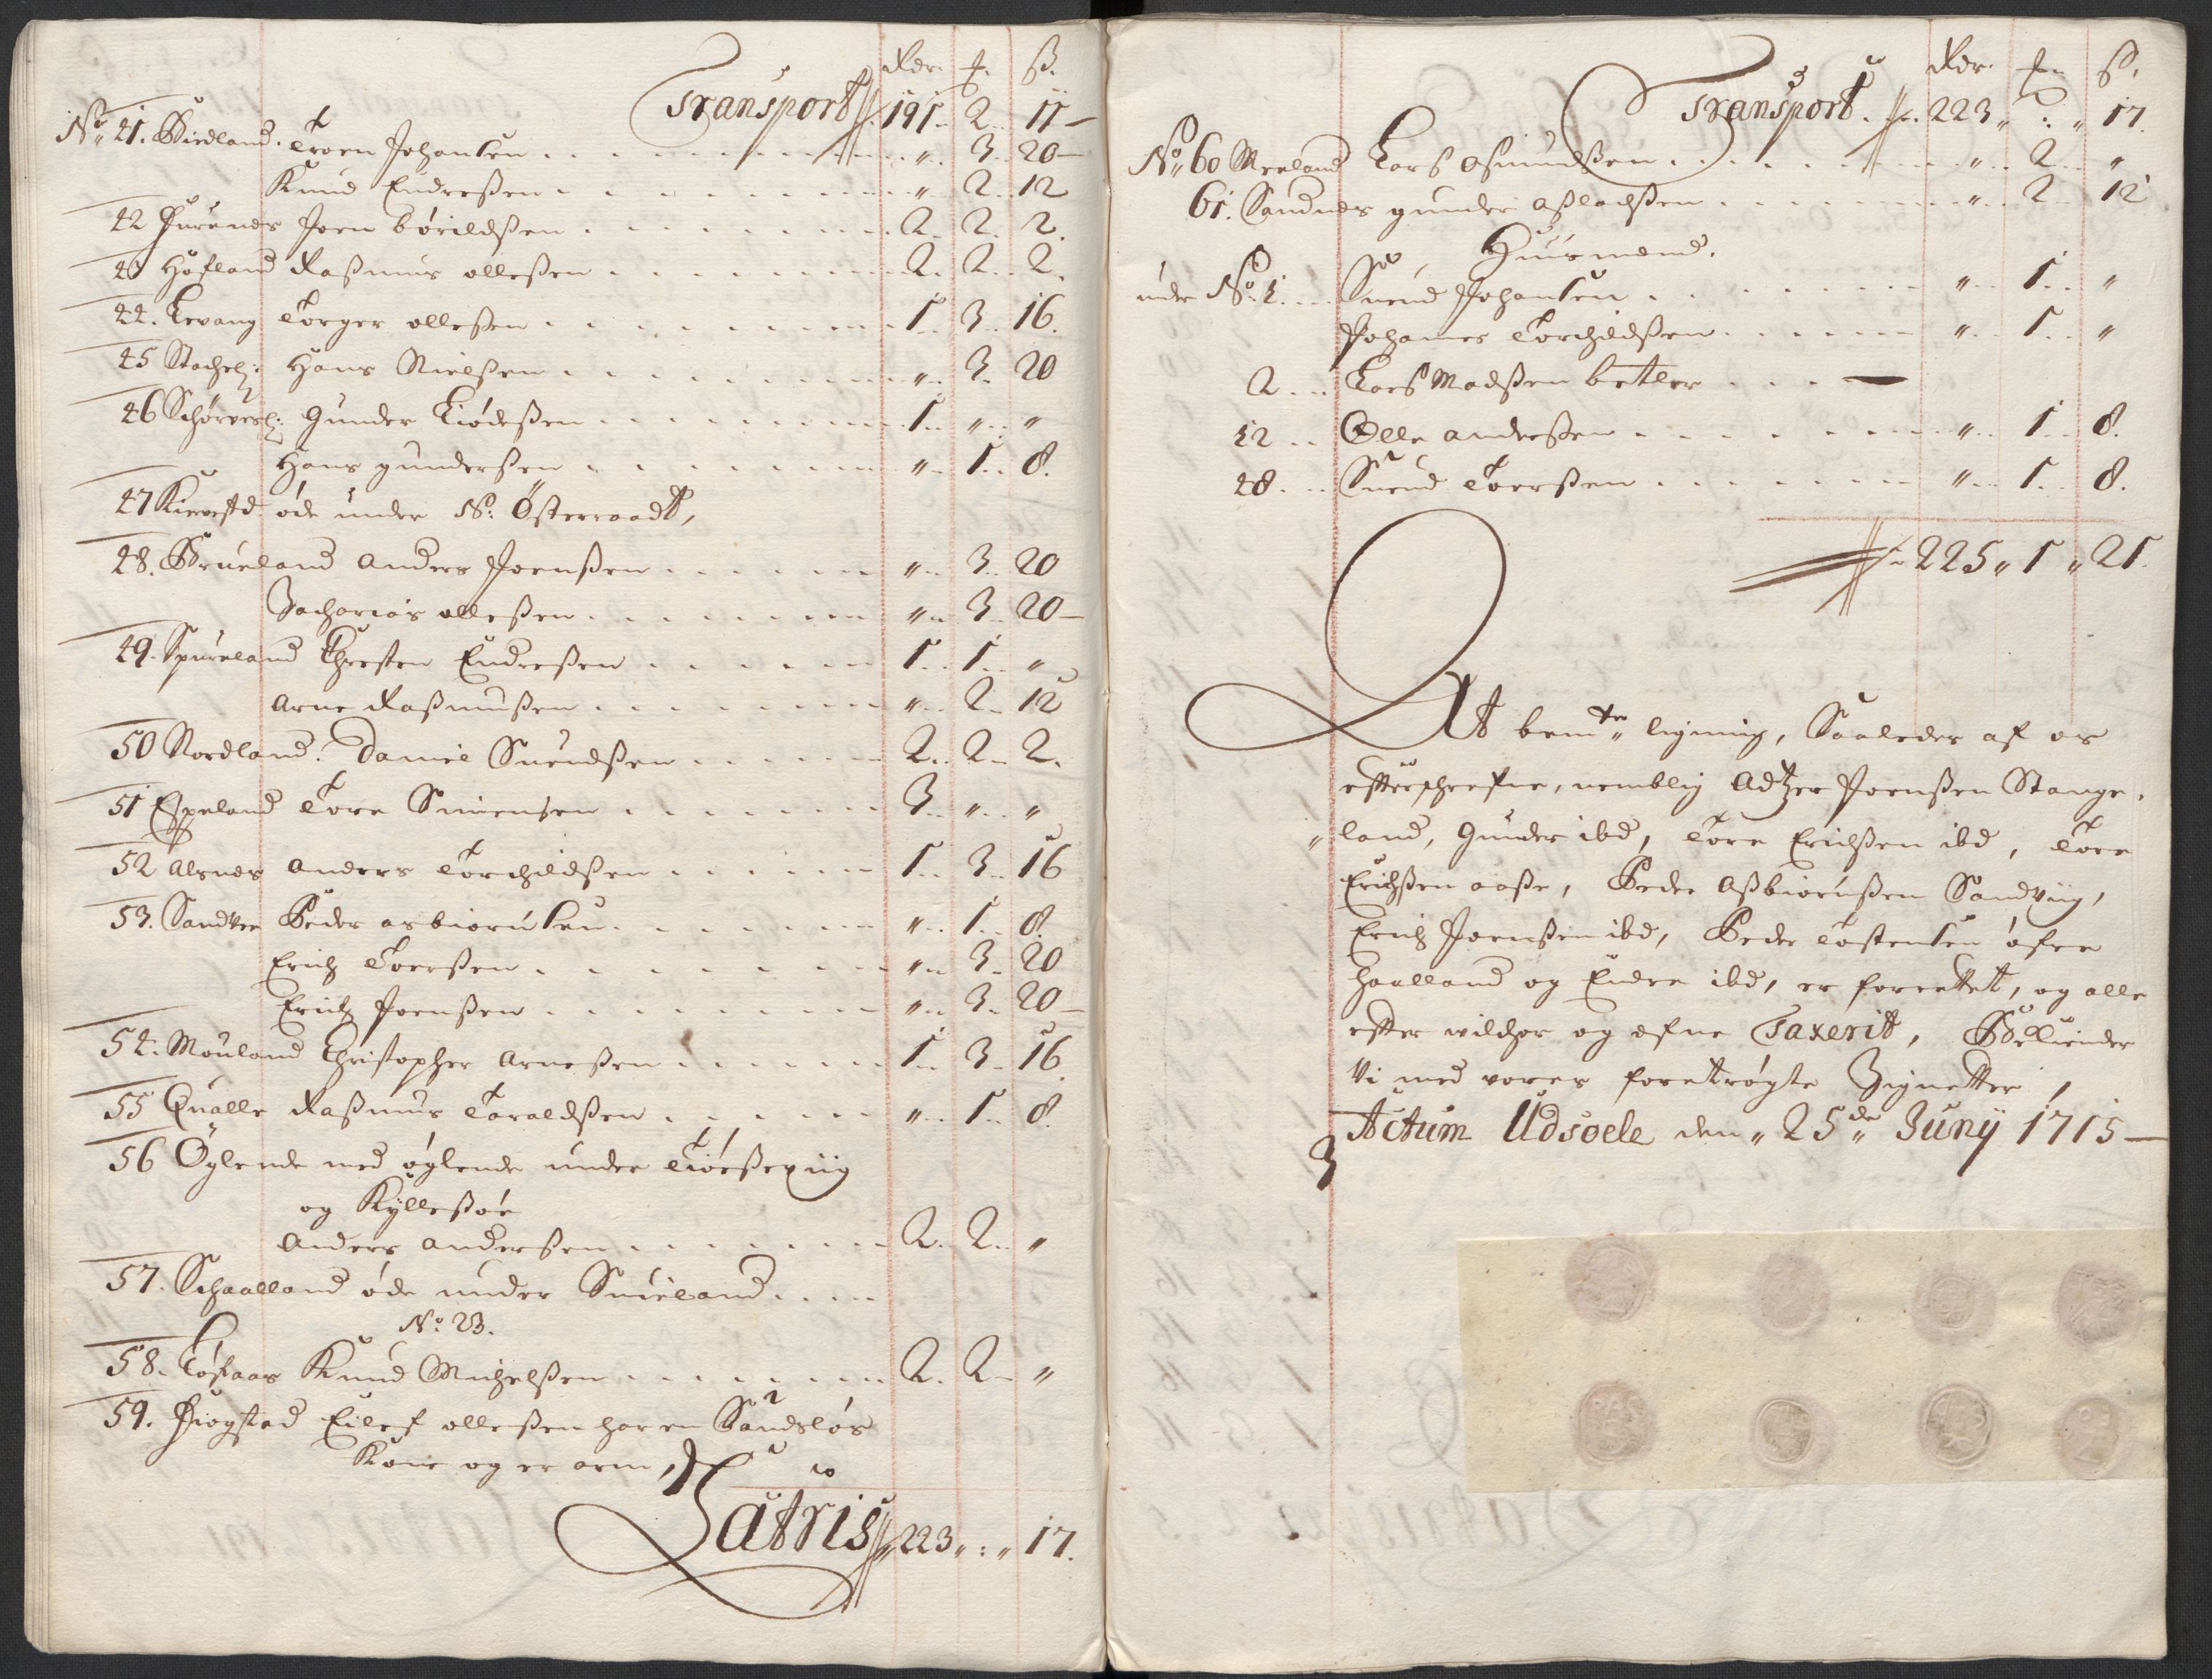 Rdr. ƒ. ß.
Transport // 191 .. 2 .. 11 –
No 41. Birkland. Troen Johansen . . . „ .. 3 .. 20 –
Knud Endreßen . . . „ 2 .. 12
42 Furenes Joen Børildßen . . . 2 .. 2 .. 2.
43 Høfland Raßmus olleßen . . . 2 .. 2 .. 2.
44. Levang Torger olleßen . . . 1 .. 3 .. 16.
45 Stachel: Hans Nielßen . . . „ .. 3 .. 20
46 Gunder Tiødeßen . . . 1 .. „ .. „
Hans gunderßen . . . „ .. 1 .. 8.
47 øde under Nº: Østeraadt,
48. Brueland Anders Joenßen . . . „ .. 3 .. 20
Zacharias olleßen . . . „ .. 3 .. 20 –
49. Spureland Thorsten Endreßen . . . 1 .. 1 .. „
Arne Raßmußen . . . „ .. 2 .. 12
50 Nordland. Daniel Suendßen . . . 2 .. 2 .. 2.
51 Espeland Tore Simensen . . . 3 .. „ .. „
52 Alsnes Anders Torchildßen . . . 1 .. 3 .. 16
53. Sandvee Peder asbiørnsen . . . „ .. 1 .. 8.
Erich Toerßen . . . „ .. 3 .. 20
Erich Joenßen . . . „ .. 3 .. 20 –
54. Mouland Christopher Arneßen . . . 1 .. 3 .. 16
55 Qualle Raßmus Taraldßen . . . „ .. 1 .. 8.
56 Öglende med øglende under
og Kÿlleßøe
Anders Anderßen . . . 2 .. 2 .. „
57. Schaalland øde under Suieland . . . .
No: 23.
58. Knud Michelßen . . . 2 .. 2 .. „
59. Fiogstad Eilef olleßen har en Sandsløs
Kone og er arm,
Latris // 223 „ : „ 17.
Rdr. ƒ. ß.
Transport . // . 223 „ : „ 17.
No: 60 Meeland Lars Osmundßen . . . „ .. 2 .. „
61. Sandnes gunder aßlachßen . . . „ .. 2 .. 12
Huusmend.
under No: 1. . . Suend Johansen . . . „ .. 1 .. „
Johannes Torchildßen . . . „ .. 1 .. „
2 . . . Lars Madßen betler . . . —
12 . . Olle anderßen . . . „ .. 1 .. 8.
28 . . . Suend Toerßen . . . „ .. 1 .. 8.
// 225 „ 1 „ 21.
At bemte ligning, Saaledes af os
efterschrefne, nemblig Adtzer Joenßen Stange„
„land, Gunder ibd, Tore Erichßen ibd, Tore
Erichßen aaße, Peder Aßbiørnßen Sandviig,
Erich Joenßen ibd, Peder Tostensen øfre
haalland og Endre ibd, er forrettet, og alle
efter wilchor og efne Taxerit, Bekiender
Vi med vores foretrøgte Zignetter,
Actum Udsoele den „ 25de Junÿ 1715 –